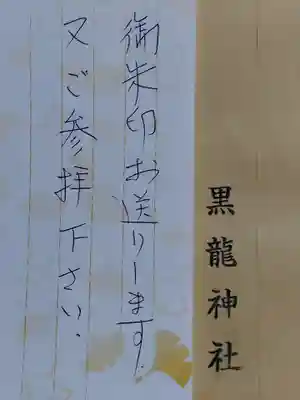 黒龍神社
御朱印お送りします.
又ご参拝下さい.